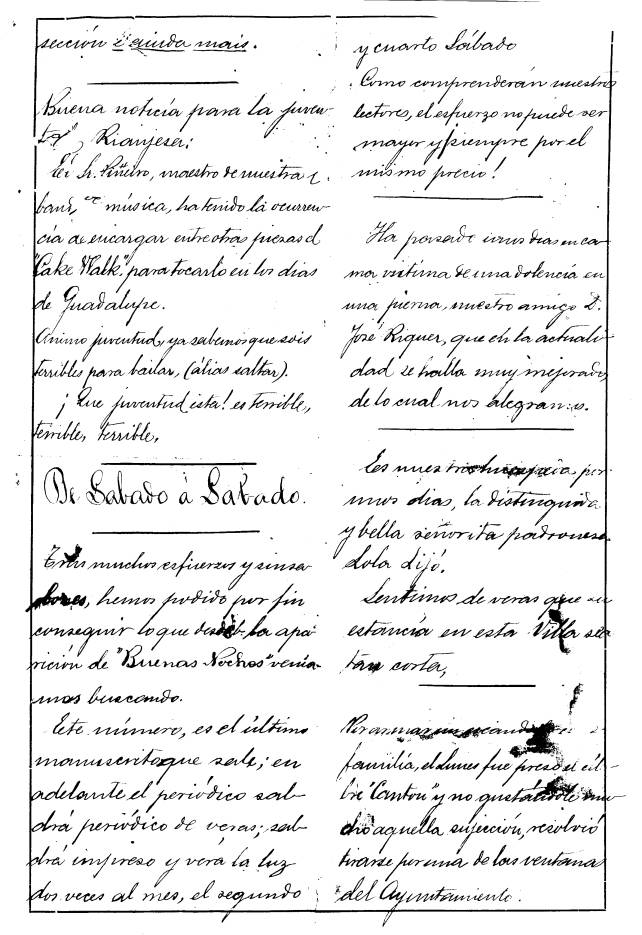 sección é ainda mais.
Buena noticía para la juven-
Rianjesa;
El Sr. Piñeiro, maestro de nuestra
música, ha tenido la ocurren-
cia de encargar entre otras piezas
"Cake Walk", para tocarlo en los dias
de Guadalupe.
Animo juventud, ya sabemos que sois
terribles para bailar, (álias saltar).
¡Que juventud ésta! es terrible,
terrible, terrible,
De Sabado á Sabado.
Tras muchos esfuerzos y sinsa-
bores, hemos podido por fin
conseguir lo que desde la apa-
rición de "Buenas Noches" venia-
mos buscando.
Este número, es el último
manuscrito que sale; en
adelante el periódico sal-
drá periódico de veras; sal-
drá impreso y verá la luz
dos veces al mes, el segundo
y cuarto Sábado
Como comprenderán nuestros
lectores, el esfuerzo no puede ser
mayor y ¡siempre por el
mismo precio!
Ha pasado unos dias en ca-
ma victima de una dolencia en
una pierna, nuestro amigo D.
José Riquer, que en la actuali-
dad se halla muy mejorado,
de lo cual nos alegramos.
Es nuestra por
unos dias, la distinguida
y bella señorita padronesa
Lola Lijó.
Sentimos de veras que su
estancia en esta Villa sea
tan corta,
Por armar un escandalo
familia, el Lunes fue preso el cél-
bre "Canton" y no gustándole mu-
cho aquella sujección, resolvió
tirarse por una de las ventanas
del Ayuntamiento.